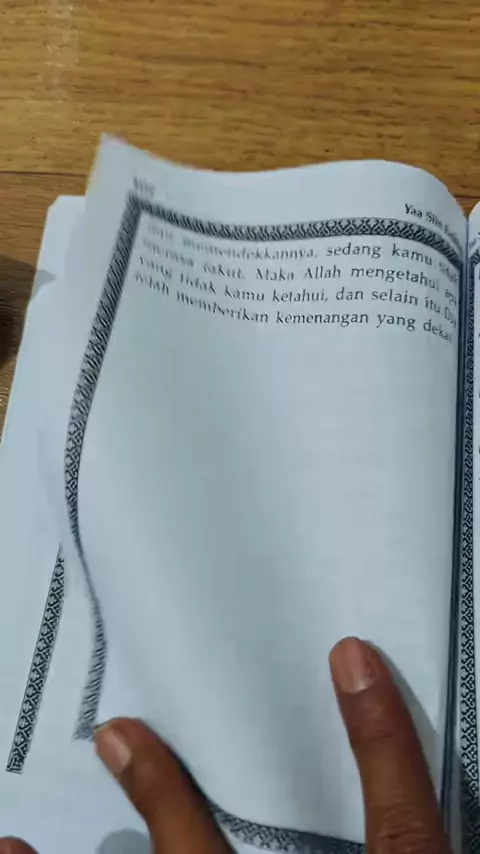 Yaa Siin
memendekkannya, sedang kamu tidak
merasa takut. Maka Allah mengetahui apa
yang tidak kamu ketahui, dan selain itu Dia
telah memberikan kemenangan yang dekat